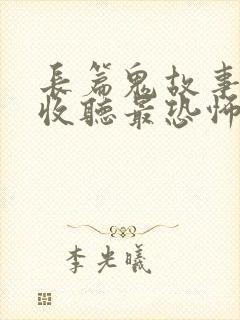 長篇鬼故事
收聽最恐怖
李光曦